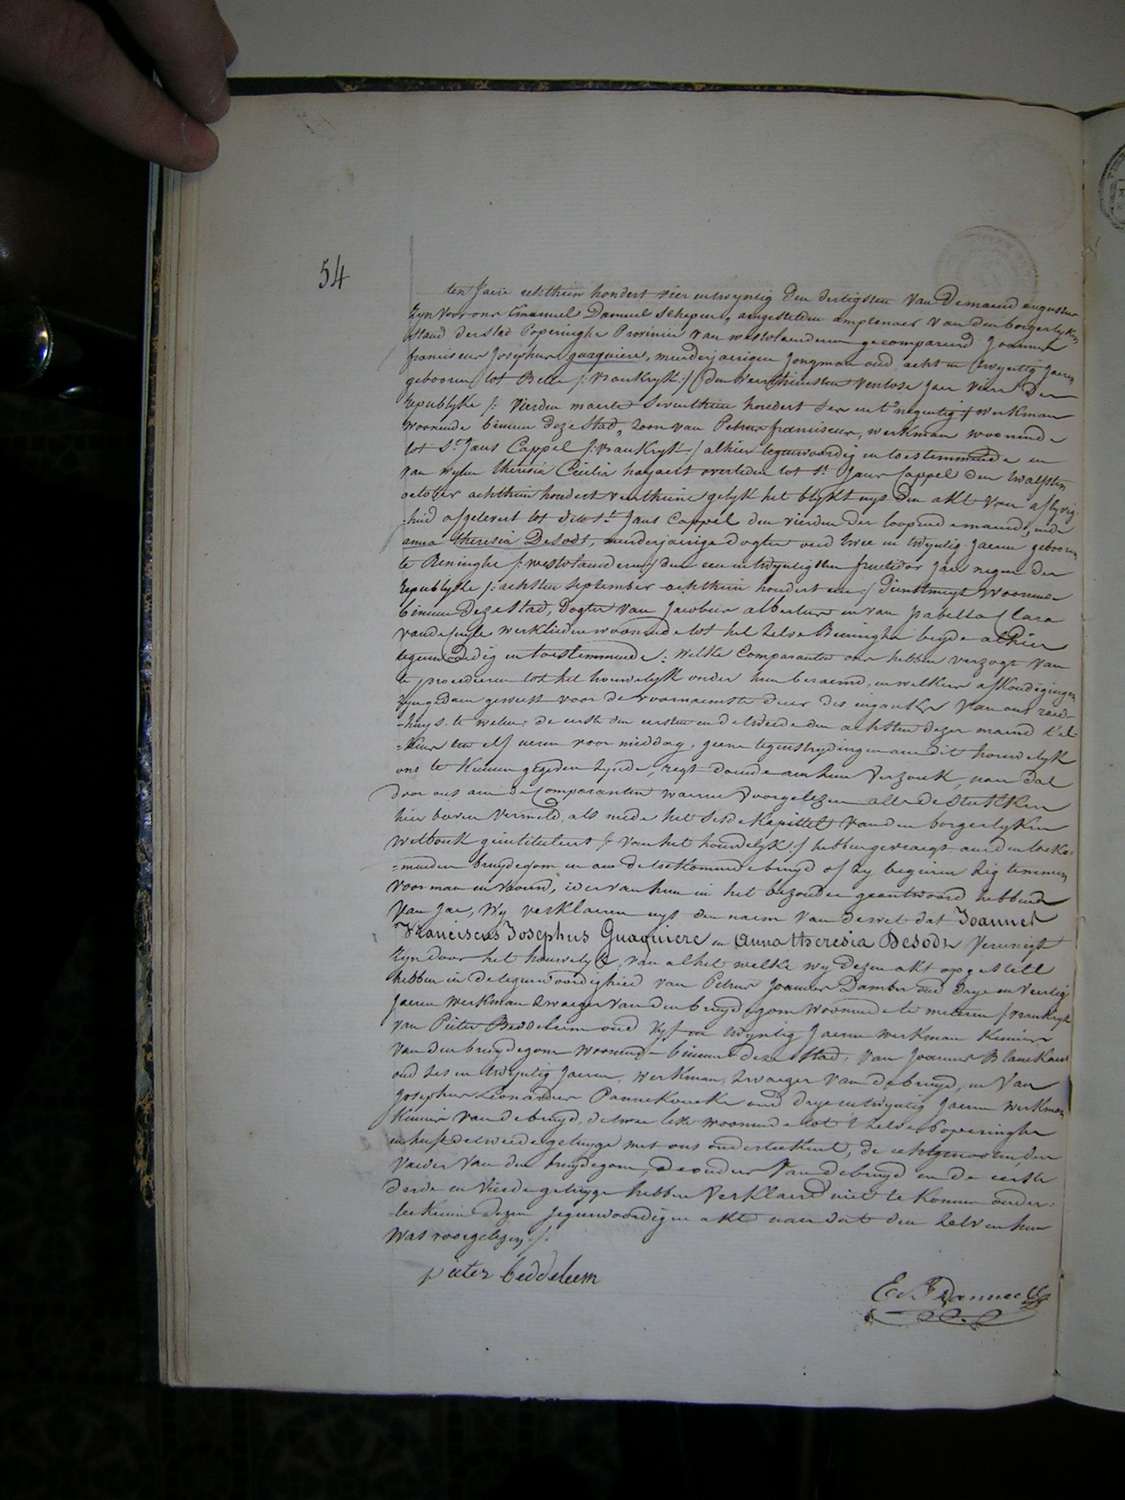 54
ten Jaere achthien hondert vier entwyntig den dertigsten van de maend augustus
zyn voor ons Emanuel Donnul Schepen, aengestelden amptenaer van den borgerlyken
stand der stad Poperinghe Provincie van westvlaenderen gecompareerd Joannes
franciscus Josephus quaquiere, meerderjaerigen Jongman oud acht en twyntig Jaeren
gebooren tot Belle /:vrankryk:/ den ventose Jaer vier der
republyke /: vierden maerte seventhien hondert ses en t'negentig :/ werkman
woonende binnen deze stad, zoon van Petrus franciscus, werkman woonende
tot St Jans Cappel /:vrankryk:/ alhier tegenwoordig en toestemmende en
van wylen theresia Cecilia hayaert overleden tot St Jans Cappel den twalfsten
october achthien hondert veerthiene gelyk het blykt uyt den akt van aflyvig-
-heid afgelevert tot dito St Jans Cappel den vierden der loopende maend, ende
anna theresia Desodt, meerderjaerige dogter oud twee en twyntig Jaeren gebooren
te Reninghe /:westvlaenderen:/ den een en twyntigsten fructidor Jaer negen der
republyke /: achtsten september achthien hondert een :/ Dienstmeyt woonende
binnen deze stad, dogter van Jacobus albertus en van Isabella Clara
werklieden woonende tot het zelve Reninghe beyde alhier
tegenwoordig en toestemmende: Welke Comparanten ons hebben verzogt van
te procederen tot het houwelyk onder hun beraemd, en welkers afkondigingen
zyn gedaen geweest voor de voornaemste deur des ingank van ons raed-
-huys te weten: de eerste den eersten en de tweede den achsten dezer maend t'el-
-kens ten elf ueren voor middag, geene tegenstrydingen aen dit houwelyk
ons te kennen gegeven zynde, regt doende aen hun verzoek, naer dat
door ons aen de Comparanten waeren voorgelezen alle de stukken
hier boven vermeld, als mede het sesde kapittel van den borgerlyken
wetboek geintituleert /: van het houwelyk :/ hebben gevraegt aen den toeko-
-menden bruydegom en aen de toekomende bruyd of zy begeiren zig te nemen
voor man en vrouw, ider van hun in het bezonder geantwoord hebbende
van Jae, Wy verklaeren uyt den naem van de wet dat Joannes
Franciscus Josephus Quaquiere en Anna theresia Desodt vereenigt
zyn door het houwelyk, van al het welke wy dezen akt opgestelt
hebben in de tegenwoordigheid van Petrus Joannes Dambre oud drye en veertig
Jaeren werkman zwaeger van den bruydegom woonende te meteren /:vrankryk
van Pieter Beddeleem oud vyf en twyntig Jaeren werkman kennis
van den bruydegom woonende binnen deze stad; van Joannes Blanckaert
oud ses en twyntig Jaeren, werkman, zwaeger van de bruyd, en van
Josephus Leonardus Pannekoucke oud drye en twyntig Jaeren werkman
kennis van de bruyd, de twee leste woonende tot 't zelve Poperinghe
en heeft de tweede getuyge met ons onderteekent, de echtgenooten, den
vader van den bruydegom, de ouders van de bruyd en de eerste
derde en vierde getuyge hebben verklaerd niet te konnen onder-
-teekenen dezen jegenwoordigen akt naer dat den zelven hun
was voorgelezen :/.
pieter beddeleem